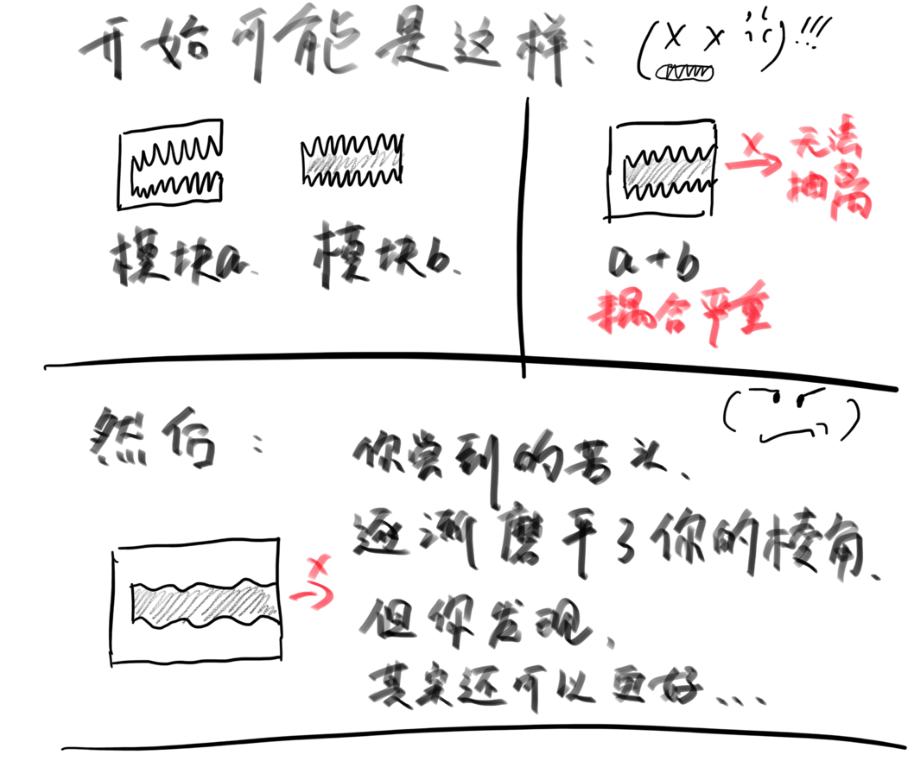 开始可能是这样:
模块a.
模块b.
x
无法
抽离
a+b
耦合严重
然后:
你尝到的苦头、
逐渐磨平了你的棱角、
但你发现、
其实还可以更好...
x